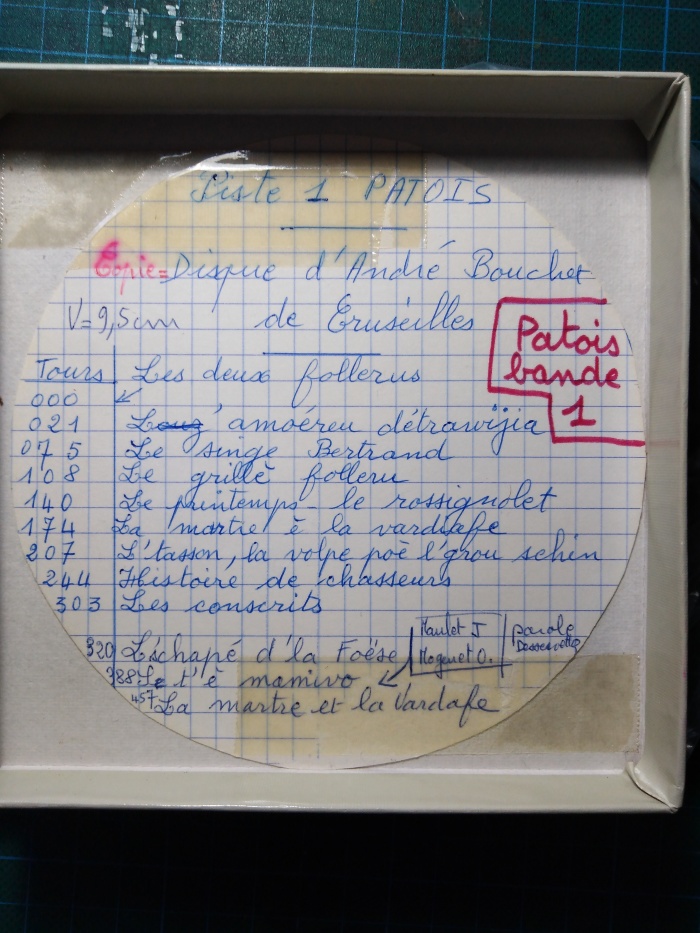 Piste 1 PATOIS
Copie = Disque d'André Bouchet
V = 9,5 cm de Eruseilles
Patois
bande
1
Tours Les deux follerus
000
021 L' amoéreu détrawijia
075 Le singe Bertrand
108 Le grillè folleru
140 Le printemps - le rossignolet
174 La martre è la vardiafe
207 L'tasson, la volpe poè l'grou schin
244 Histoire de chasseurs
303 Les conscrits
Maulet J parole
320 L'schapé d'la Foëse Moguet O.
388 t'è mamivo
457 La martre et la Vardafe